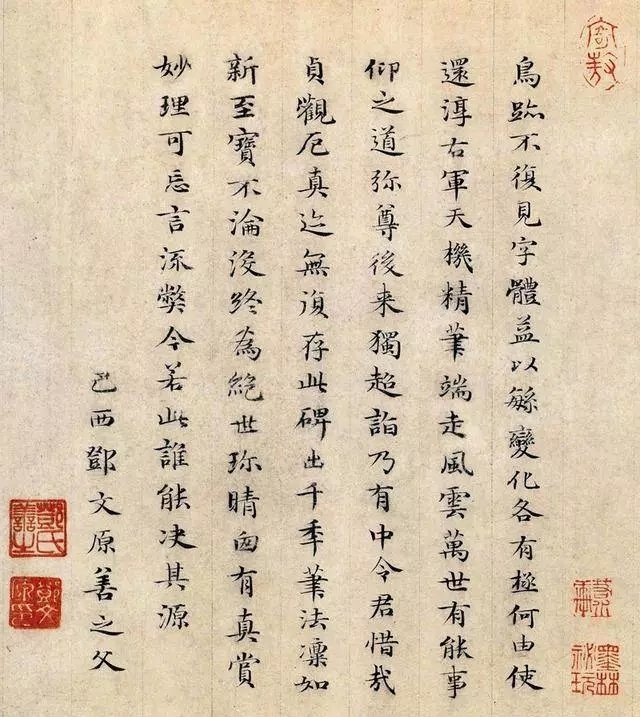 鳥跡不復見字體益以緐變化各有極何由使
還淳右軍天機精筆端走風雲萬世有能事
仰之道弥尊後来獨超詣乃有中令君惜哉
貞觀厄真迹無復存此碑出千季筆法凜如
新至寶不淪没終為絕世珎晴囱有真賞
妙理可忘言流弊今若此誰能决其源
己酉鄧文原善之父
墨林秘玩